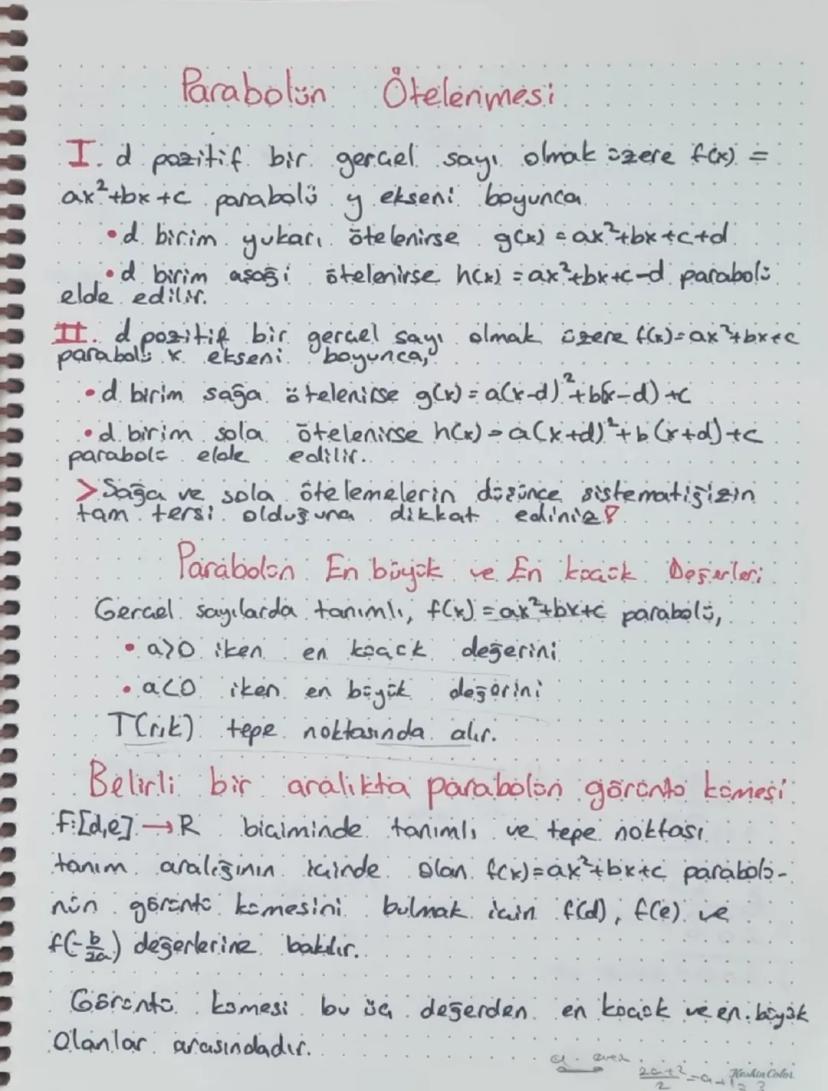 Parabolün Ötelenmesi
I. d pozitif bir gerçel sayı olmak üzere f(x) =
ax²+bx+c parabolü y ekseni boyunca
• d birim yukarı ötelenirse g(x) = ax²+bx+c+d
• d birim aşağı ötelenirse h(x) = ax²+bx+c-d parabolü
elde edilir.
II. d pozitif bir gerçel sayı olmak üzere f(x)=ax²+bx+c
parabolü x ekseni boyunca,
• d birim sağa ötelenirse g(x) = a(x-d)²+b(x-d)+c
• d birim sola ötelenirse h(x) = a(x+d)²+b(x+d)+c
parabolü elde edilir.
> Sağa ve sola ötelemelerin düşünce sistematiğizin
tam tersi olduğuna dikkat ediniz!
Parabolün En büyük ve En küçük Değerleri
Gerçel sayılarda tanımlı, f(x) = ax²+bx+c parabolü,
• a>0 iken en küçük değerini
• a<0 iken en büyük değerini
T(r,k) tepe noktasında alır.
Belirli bir aralıkta parabolün görüntü kümesi
f:[d,e] → R biçiminde tanımlı ve tepe noktası
tanım aralığının içinde olan f(x)=ax²+bx+c parabolü-
nün görüntü kümesini bulmak için f(d), f(e) ve
f(-b/2a) değerlerine bakılır.
Görüntü kümesi bu üç değerden en küçük ve en büyük
olanlar arasındadır.
KeskinColor